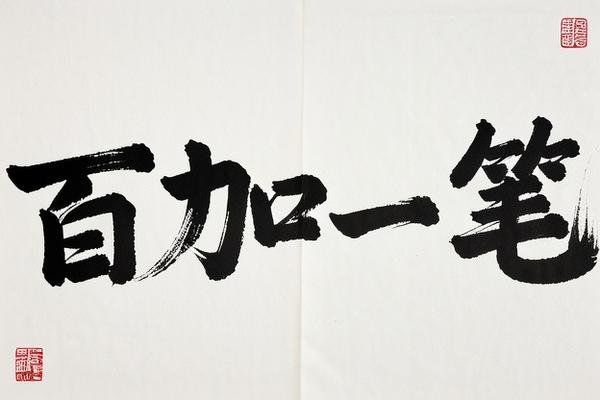 百加一笔